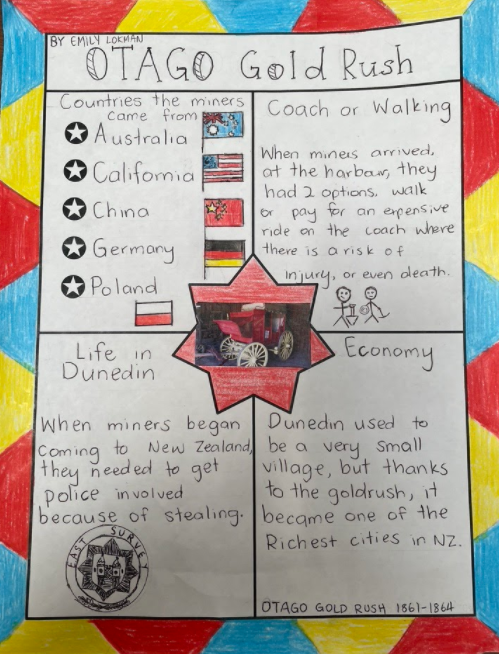 BY EMILY LOKMAN
OTAGO Gold Rush
Countries the miners
came from
Australia
California
China
Germany
Poland
Coach or Walking
When miners arrived,
at the harbour, they
had 2 options, walk
or pay for an expensive
ride on the coach where
there is a risk of
injury, or even death.
Life in
Dunedin
When miners began
coming to New Zealand,
they needed to get
police involved
because of stealing.
EAST SURVEY
Economy
Dunedin used to
be a very small
village, but thanks
to the goldrush, it
became one of the
Richest cities in NZ.
OTAGO GOLD RUSH 1861-1864